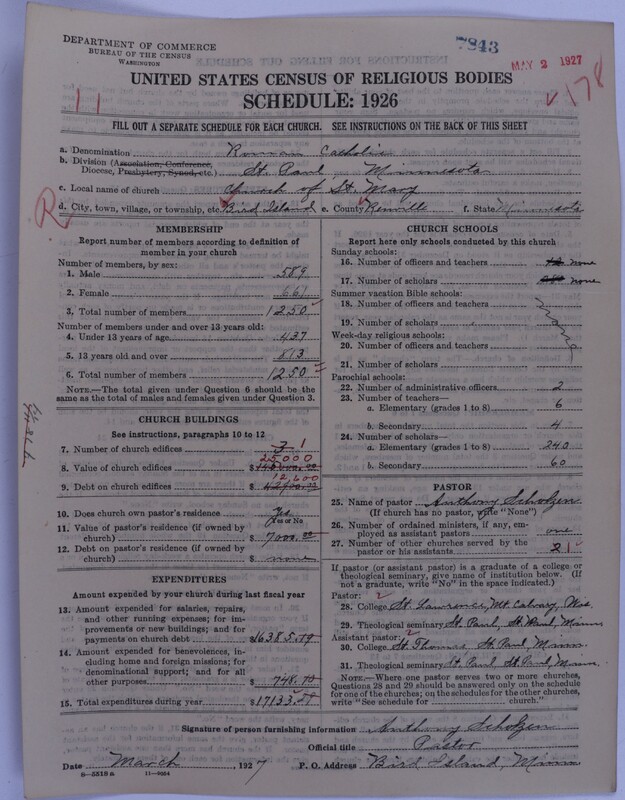 DEPARTMENT OF COMMERCE
BUREAU OF THE CENSUS
WASHINGTON
7843
MAY 2 1927
178
UNITED STATES CENSUS OF RELIGIOUS BODIES
SCHEDULE: 1926
11
FILL OUT A SEPARATE SCHEDULE FOR EACH CHURCH. SEE INSTRUCTIONS ON THE BACK OF THIS SHEET
a. Denomination Roman Catholic
b. Division (Association, Conference, Diocese, Presbytery, Synod, etc.) St. Paul, Minnesota
c. Local name of church Church of St. Mary
d. City, town, village, or township, etc. Bird Island e. County Renville f. State Minnesota
R
MEMBERSHIP
Report number of members according to definition of
member in your church
Number of members, by sex:
1. Male 589
2. Female 661
3. Total number of members 1250
Number of members under and over 13 years old:
4. Under 13 years of age 437
5. 13 years old and over 813
6. Total number of members 1250
NOTE.—The total given under Question 6 should be the
same as the total of males and females given under Question 3.
CHURCH BUILDINGS
See instructions, paragraphs 10 to 12
7. Number of church edifices 3 1
25,000
8. Value of church edifices $
12,600
9. Debt on church edifices $
10. Does church own pastor's residence? Yes
Yes or No
11. Value of pastor's residence (if owned by
church) $ 7000.00
12. Debt on pastor's residence (if owned by
church) $ none
EXPENDITURES
Amount expended by your church during last fiscal year
13. Amount expended for salaries, repairs,
and other running expenses; for im-
provements or new buildings; and for
payments on church debt $16385.19
14. Amount expended for benevolences,
including home and foreign missions; for
denominational support; and for all
other purposes $ 748.
15. Total expenditures during year $17133.
CHURCH SCHOOLS
Report here only schools conducted by this church
Sunday schools:
16. Number of officers and teachers none
17. Number of scholars none
Summer vacation Bible schools:
18. Number of officers and teachers
19. Number of scholars
none
Week-day religious schools:
20. Number of officers and teachers
21. Number of scholars
Parochial schools:
22. Number of administrative officers 2
23. Number of teachers—
a. Elementary (grades 1 to 8) 6
b. Secondary 4
24. Number of scholars—
a. Elementary (grades 1 to 8) 240
b. Secondary 60
PASTOR
25. Name of pastor Anthony Scholzen
(If church has no pastor, write "None")
26. Number of ordained ministers, if any, em-
ployed as assistant pastors one
27. Number of other churches served by the
pastor or his assistants 1
If pastor (or assistant pastor) is a graduate of a college or
theological seminary, give name of institution below. (If
not a graduate, write "No" in the space indicated.)
Pastor: 2
28. College St. Lawrence, Mt. Calvary, Wis.
29. Theological seminary St. Paul, St. Paul, Minn
Assistant pastor: 2
30. College St. Thomas St. Paul, Minn.
31. Theological seminary St. Paul, St. Paul, Minn.
NOTE.—Where one pastor serves two or more churches,
Questions 28 and 29 should be answered only on the schedule
for one of the churches; on the schedules for the other churches,
write "See schedule for church."
Signature of person furnishing information Anthony Scholzen
Official title Pastor
Date March, 1927 P. O. Address Bird Island, Minn
8—5518a 11—9064